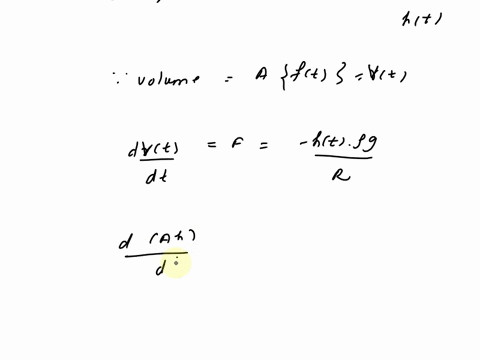 h(t)
∵ volume = A {f(t)} = V(t)
dV(t)/dt = F = -h(t).ρg/R
d (Ah)/d